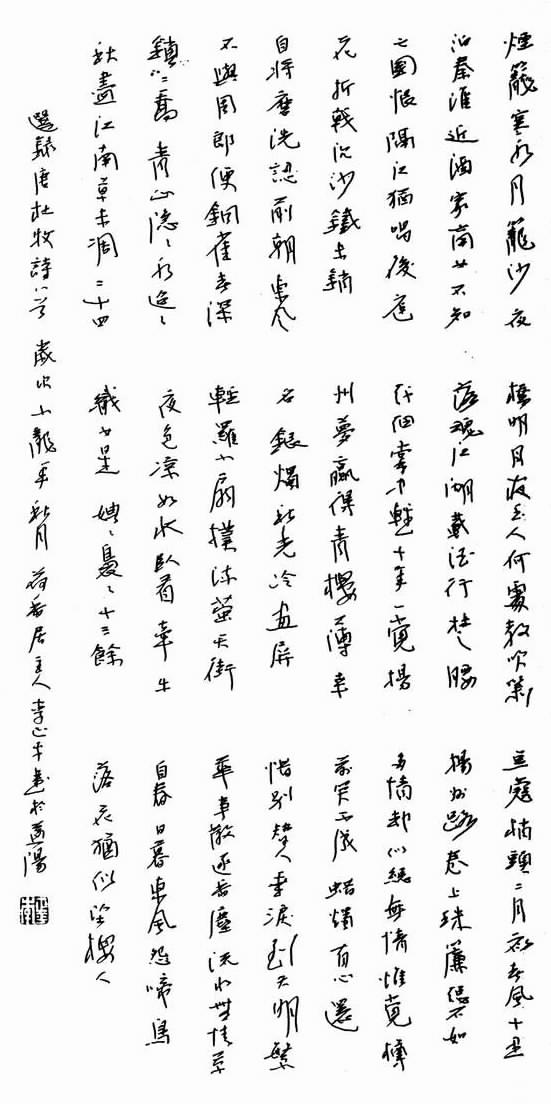 煙籠寒水月籠沙夜
泊秦淮近酒家商女不知
亡國恨隔江猶唱後庭
花折戟沉沙鐵未銷
自將磨洗認前朝東風
不與周郎便銅雀春深
鎖二喬青山隱〻水迢〻
秋盡江南草未凋二十四
橋明月夜玉人何處教吹簫
落魄江湖載酒行楚腰
纖細掌中輕十年一覺揚
州夢贏得青樓薄幸
名銀燭秋光冷畫屏
輕羅小扇撲流螢天街
夜色涼如水臥看牽牛
織女星娉〻裊〻十三餘
豆蔻梢頭二月初春風十里
揚州路卷上珠簾總不如
多情却似總無情惟覺樽
前笑不成蠟燭有心還
惜別替人垂淚到天明繁
華事散逐香塵流水無情草
自春日暮東風怨啼鳥
落花猶似墜樓人
選錄唐杜牧詩八首 歲次小龍年秋月 荷香居主人李心書於益陽